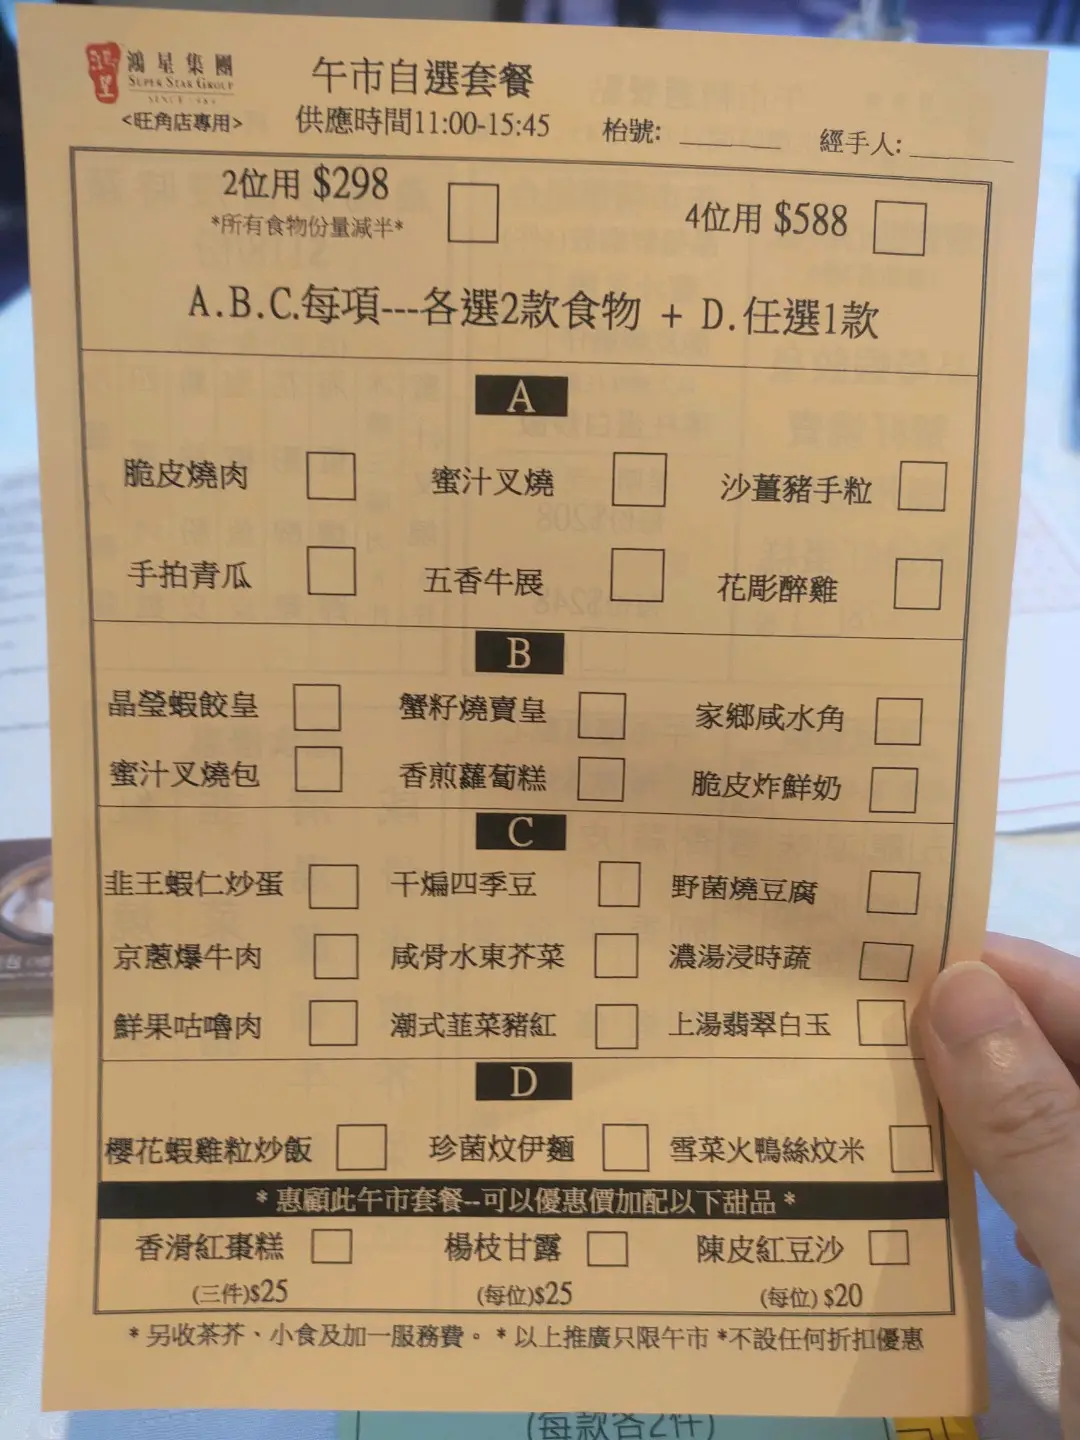 鴻星集團
SUPER STAR GROUP
<旺角店專用>
午市自選套餐
供應時間11:00-15:45
枱號: 經手人:
2位用 $298
*所有食物份量減半*
4位用 $588
A.B.C.每項---各選2款食物 + D.任選1款
A
脆皮燒肉 蜜汁叉燒 沙薑豬手粒
手拍青瓜 五香牛展 花彫醉雞
B
晶瑩蝦餃皇 蟹籽燒賣皇 家鄉咸水角
蜜汁叉燒包 香煎蘿蔔糕 脆皮炸鮮奶
C
韭王蝦仁炒蛋 干煸四季豆 野菌燒豆腐
京蔥爆牛肉 咸骨水東芥菜 濃湯浸時蔬
鮮果咕嚕肉 潮式韮菜豬紅 上湯翡翠白玉
D
櫻花蝦雞粒炒飯 珍菌炆伊麵 雪菜火鴨絲炆米
*惠顧此午市套餐--可以優惠價加配以下甜品*
香滑紅棗糕 楊枝甘露 陳皮紅豆沙
(三件)$25 (每位)$25 (每位) $20
*另收茶芥、小食及加一服務費。 *以上推廣只限午市 *不設任何折扣優惠
(每款各2件)